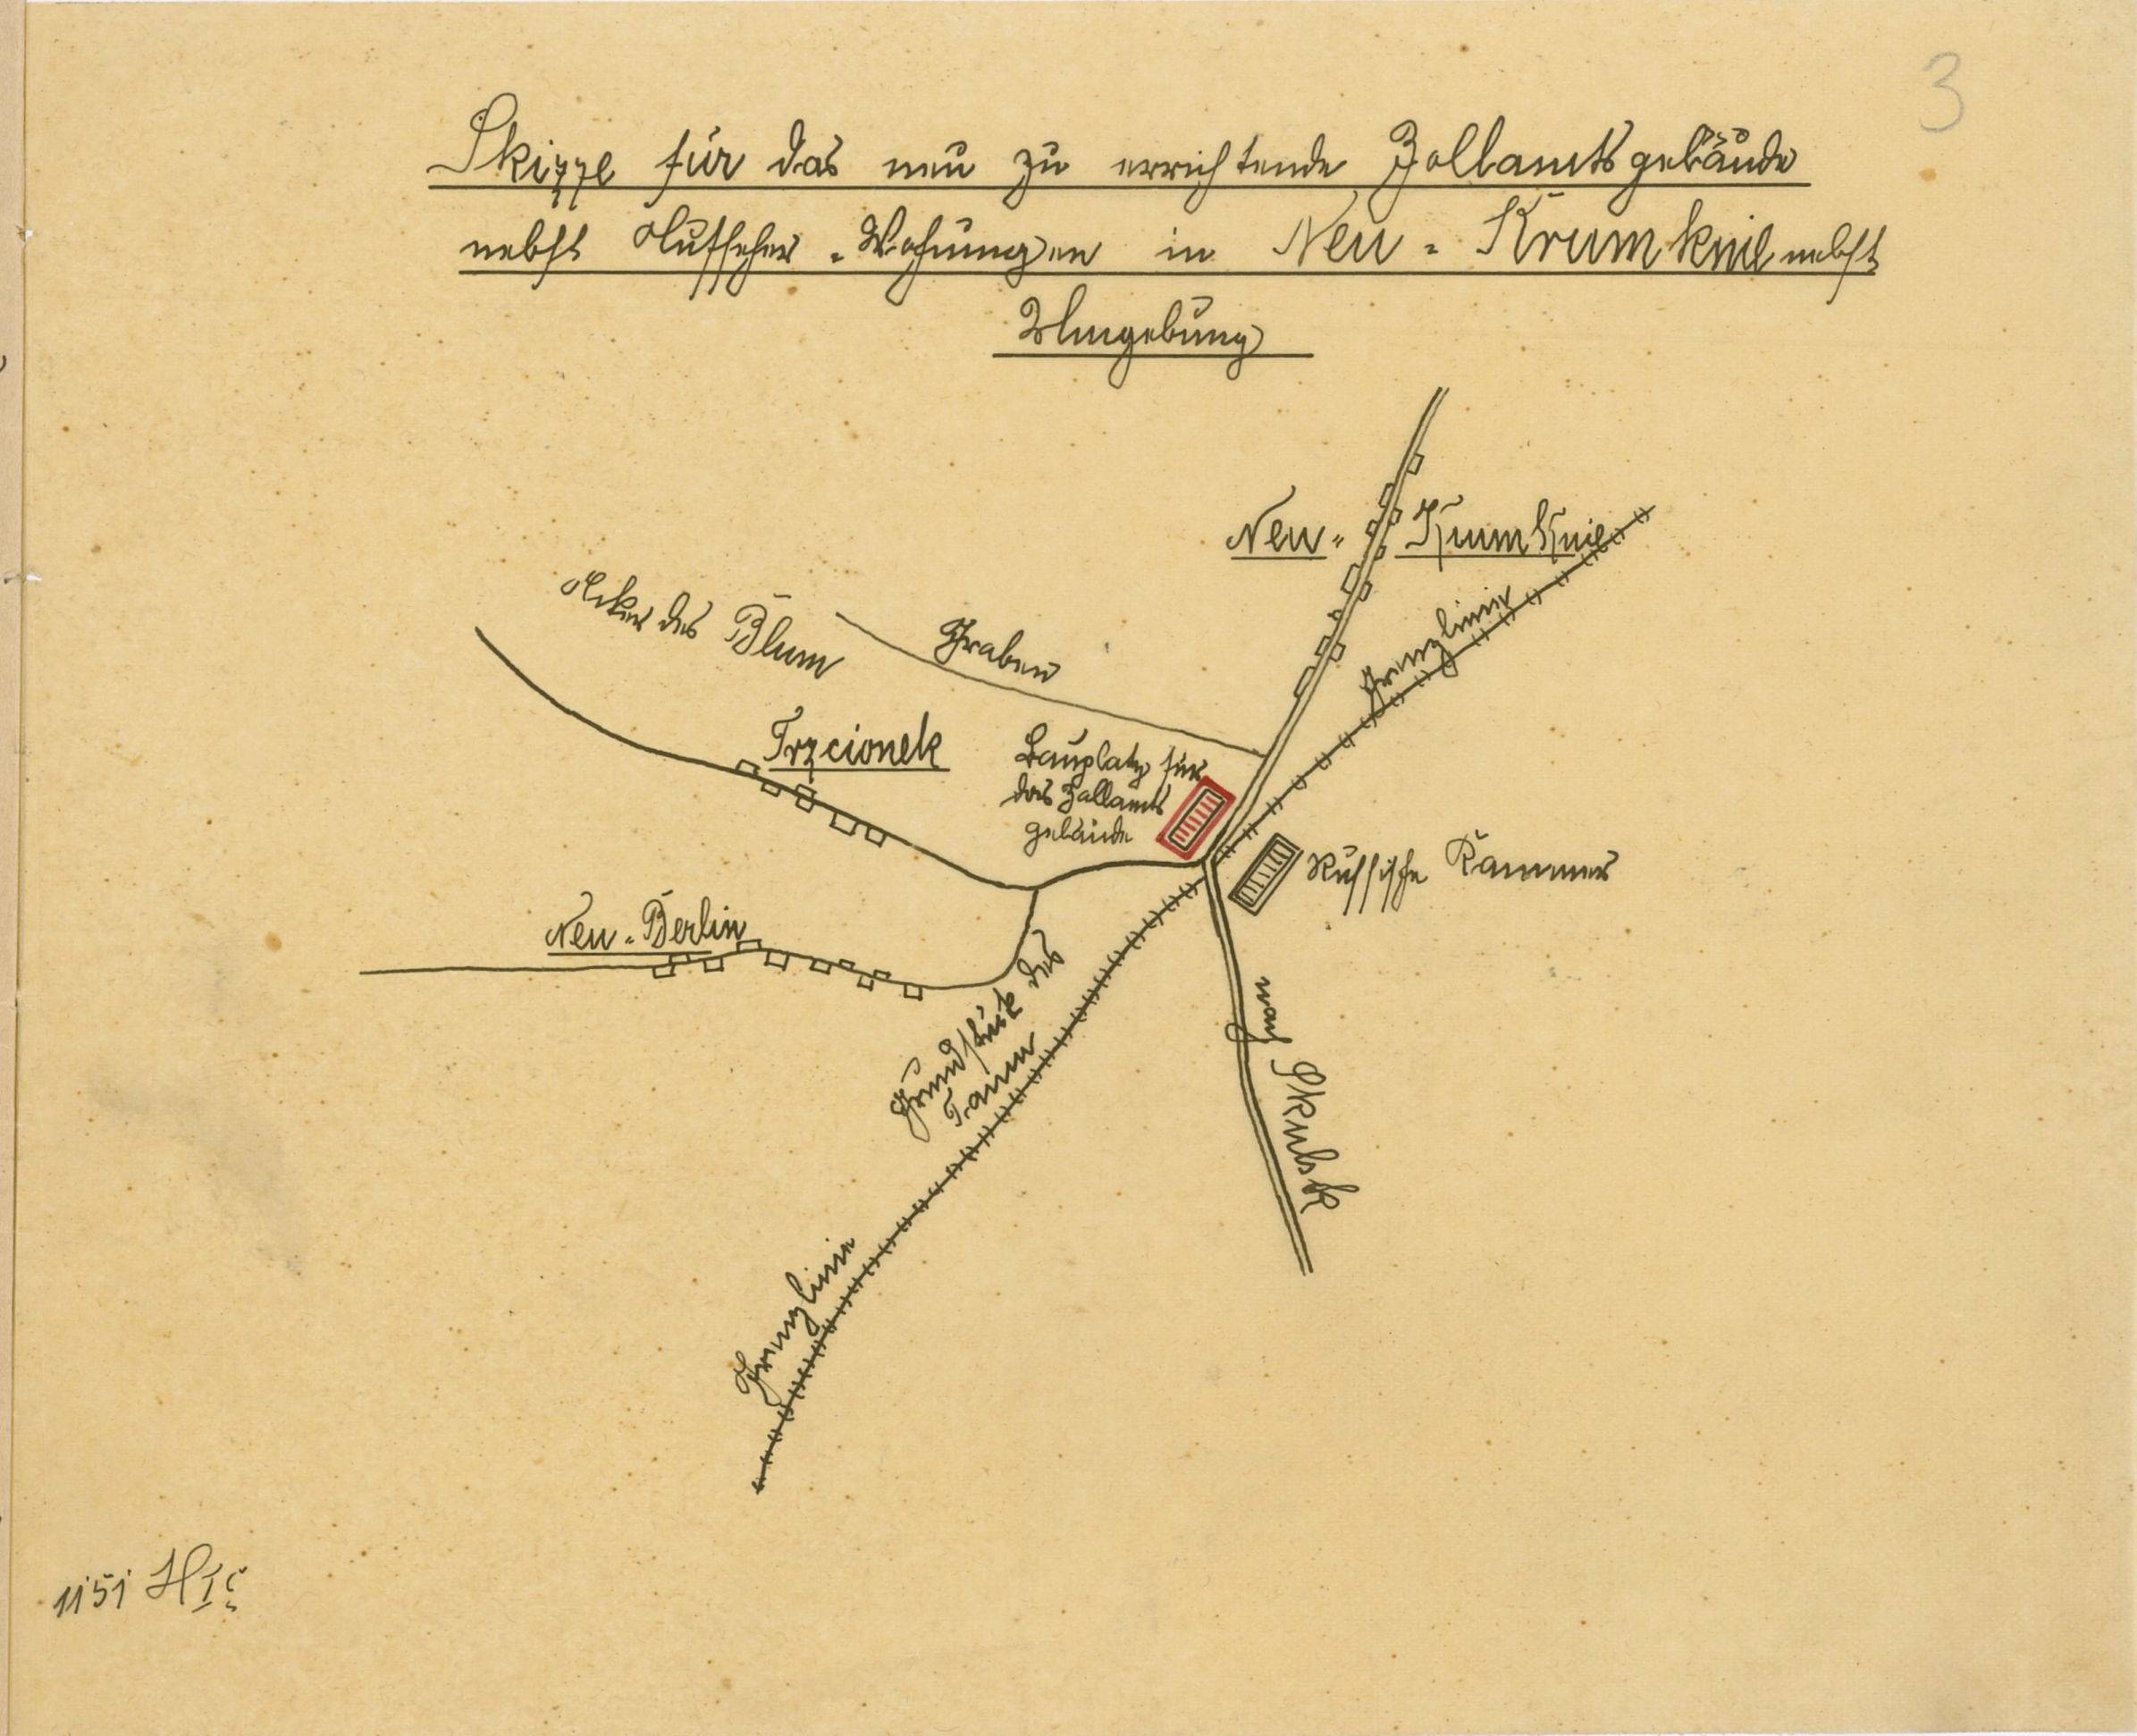 3
Skizze für das neu zu errichtende Zollamtsgebäude
nebst Aufseher-Wohnungen in Neu-Krumknie nebst
Umgebung
Neu- Krumknie
Grenzlinie
Acker des Blum
Graben
Trzcionek
Bauplatz für
das Zollamts
gebäude
Russische Kammer
Neu-Berlin
Grundstück des
Tamm
nach Skulsk
Grenzlinie
1151